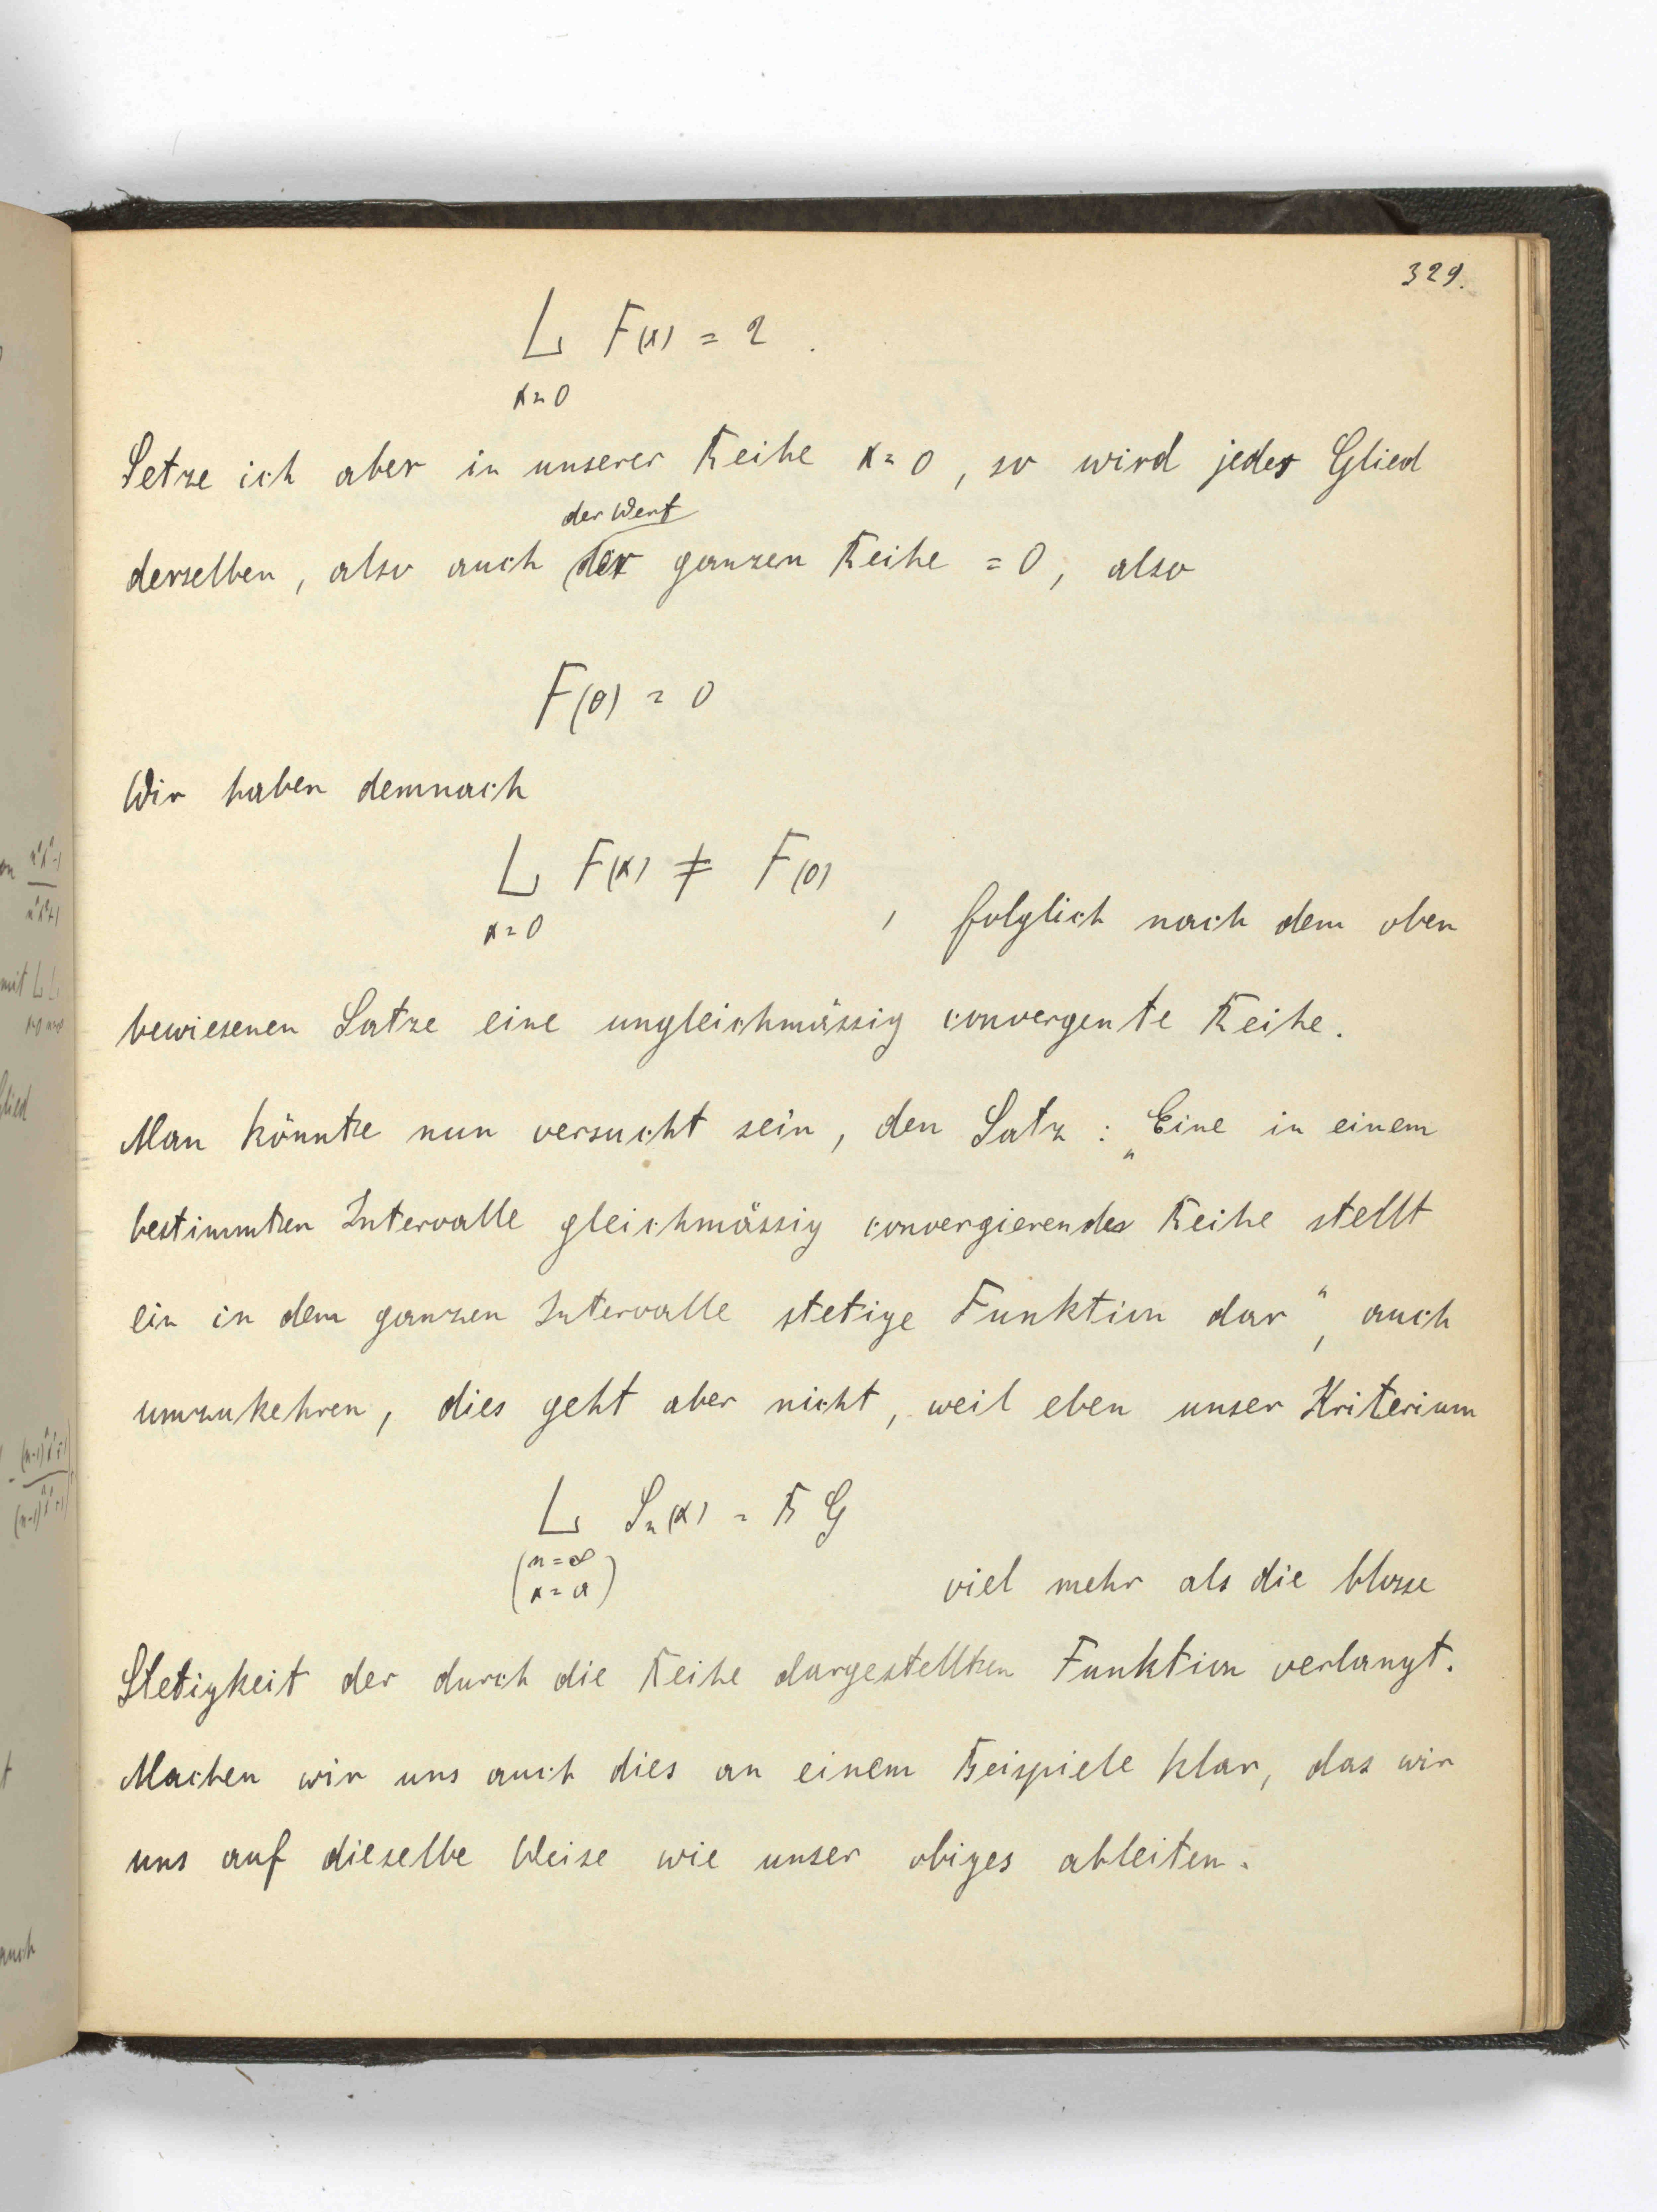 329.
L F(x) = 2 .
x=0
Setze ich aber in unserer Reihe x=0, so wird jedes Glied
der Wert
derselben, also auch der ganzen Reihe = 0, also
F(0) = 0
Wir haben demnach
L F(x) ≠ F(0)
x=0
, folglich nach dem oben
bewiesenen Satze eine ungleichmässig convergente Reihe.
Man könnte nun versucht sein, den Satz: „Eine in einem
bestimmten Intervalle gleichmässig convergierende Reihe stellt
ein in dem ganzen Intervalle stetige Funktion dar“, auch
umzukehren, dies geht aber nicht, weil eben unser Kriterium
L Sn(x) = B G
(n=∞
x=a)
viel mehr als die blosse
Stetigkeit der durch die Reihe dargestellten Funktion verlangt.
Machen wir uns auch dies an einem Beispiele klar, das wir
uns auf dieselbe Weise wie unser obiges ableiten.